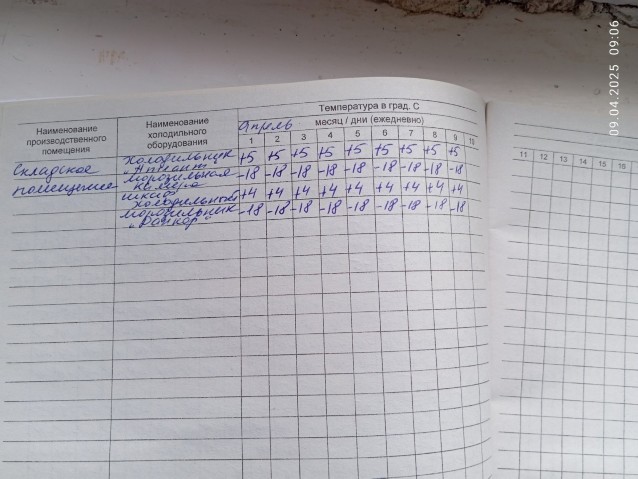 09.04.2025 09:06
Температура в град. С
Наименование производственного помещения
Наименование холодильного оборудования
месяц / дни (ежедневно)
Апрель
1 2 3 4 5 6 7 8 9 10
11 12 13 14 15 16
Складское помещение
Холодильник +5 +5 +5 +5 +5 +5 +5 +5 +5
морозильная камера -18 -18 -18 -18 -18 -18 -18 -18 -18
шкаф холодильный +4 +4 +4 +4 +4 +4 +4 +4 +4
морозильник -18 -18 -18 -18 -18 -18 -18 -18 -18